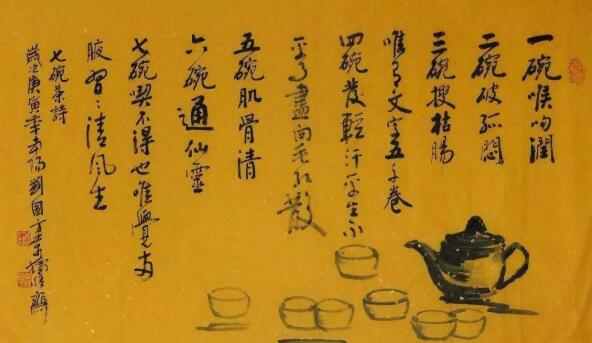 一碗喉吻潤
二碗破孤悶
三碗搜枯腸
唯有文字五千卷
四碗發輕汗平生不
平事盡向毛孔散
五碗肌骨清
六碗通仙靈
七碗喫不得也唯覺兩
腋習〻清風生
七碗茶詩
歲次庚寅年南陽劉國方書